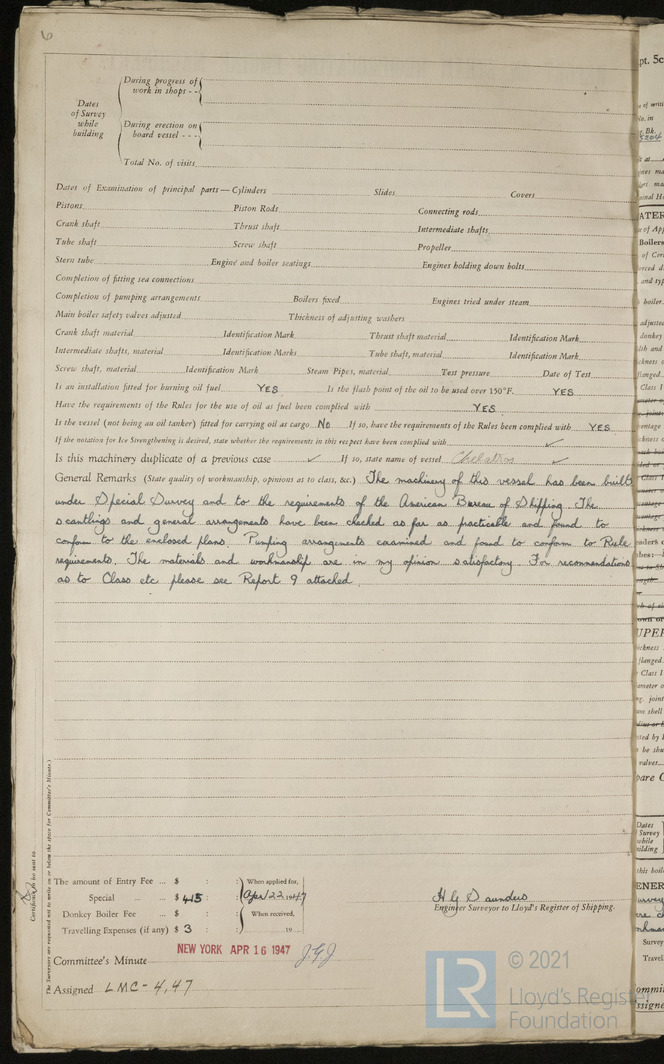 6
During progress of
work in shops - -
Dates
of Survey
while
building
During erection on
board vessel - - -
Total No. of visits
Dates of Examination of principal parts — Cylinders Slides Covers
Pistons Piston Rods Connecting rods
Crank shaft Thrust shaft Intermediate shafts
Tube shaft Screw shaft Propeller
Stern tube Engine and boiler seatings Engines holding down bolts
Completion of fitting sea connections
Completion of pumping arrangements Boilers fixed Engines tried under steam
Main boiler safety valves adjusted Thickness of adjusting washers
Crank shaft material Identification Mark Thrust shaft material Identification Mark
Intermediate shafts, material Identification Marks Tube shaft, material Identification Mark
Screw shaft, material Identification Mark Steam Pipes, material Test pressure Date of Test
Is an installation fitted for burning oil fuel YES Is the flash point of the oil to be used over 150°F. YES
Have the requirements of the Rules for the use of oil as fuel been complied with YES
Is the vessel (not being an oil tanker) fitted for carrying oil as cargo No If so, have the requirements of the Rules been complied with YES
If the notation for Ice Strengthening is desired, state whether the requirements in this respect have been complied with ✓
Is this machinery duplicate of a previous case ✓ If so, state name of vessel ✓
General Remarks (State quality of workmanship, opinions as to class, &c.) The machinery of this vessel has been built
under Special Survey and to the requirements of the American Bureau of Shipping. The
scantlings and general arrangements have been checked as far as practicable and found to
conform to the enclosed plans. Pumping arrangements examined and found to conform to Rule
requirements. The materials and workmanship are in my opinion satisfactory. For recommendations
as to Class etc please see Report 9 attached.
The amount of Entry Fee ... $ : :
Special ... ... $ 415 : :
Donkey Boiler Fee ... $ : :
Travelling Expenses (if any) $ 3 : :
When applied for,
April 22 1947
When received,
19
H G Saunders
Engineer Surveyor to Lloyd's Register of Shipping.
Committee's Minute NEW YORK APR 16 1947
Assigned LMC - 4,47
Certificate to be sent to
(The Surveyors are requested not to write on or below the space for Committee's Minute.)
LR
© 2021
Lloyd's Register
Foundation